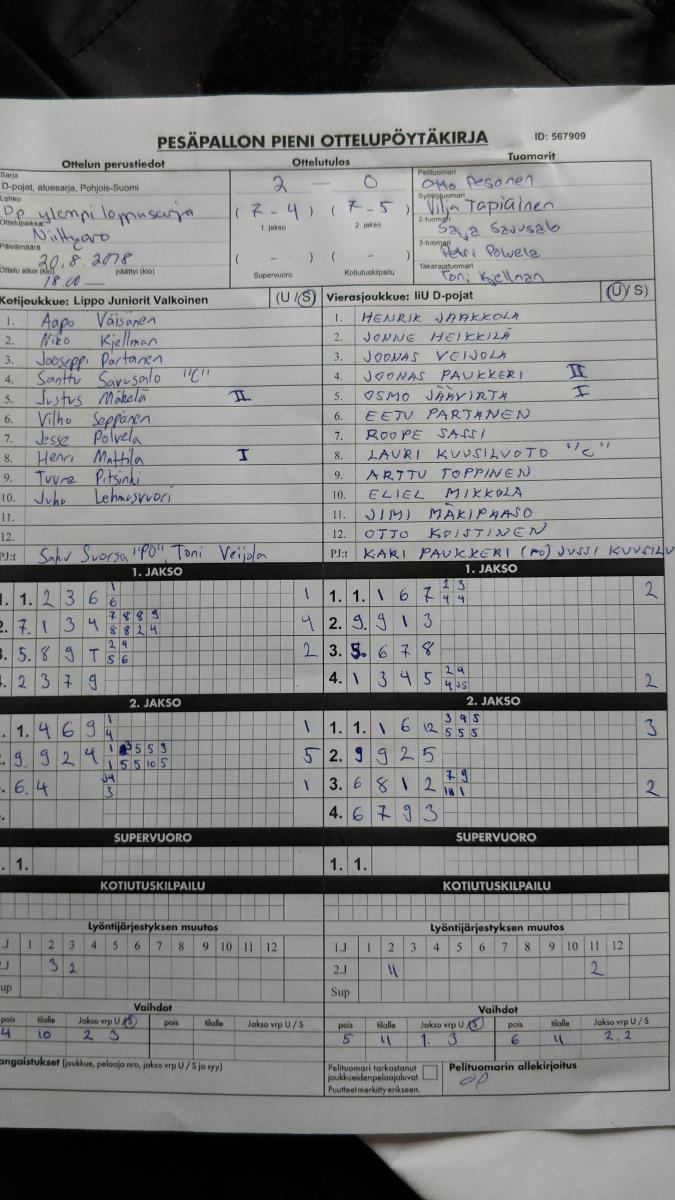 PESÄPALLON PIENI OTTELUPÖYTÄKIRJA ID: 567909
Ottelun perustiedot Ottelutulos Tuomarit
Sarja
D-pojat, aluesarja, Pohjois-Suomi
Lohko
Dp ylempi loppusarja
Ottelupaikka
Niittyaro
Päivämäärä
20.8.2018
Ottelu alkoi (klo) päättyi (klo)
18.00 —
2 — 0
( 7 - 4 ) ( 7 - 5 )
1. jakso 2. jakso
( - ) ( - )
Supervuoro Kotiutuskilpailu
Pelituomari
Otto Pesonen
Syöttötuomari
Vilja Tapiainen
2-tuomari
Saija Savusalo
3-tuomari
Petri Polvela
Takarajatuomari
Toni Kjellman
Kotijoukkue: Lippo Juniorit Valkoinen (U / S)
1. Aapo Väisänen
2. Niko Kjellman
3. Jooseppi Partanen
4. Santtu Savusalo "C"
5. Justus Mäkelä II
6. Vilho Seppänen
7. Jesse Polvela
8. Henri Mattila I
9. Tuure Pitsinki
10. Juho Lehmusvuori
11.
12.
PJ:t Saku Suorsa "PO", Toni Veijola
Vierasjoukkue: IiU D-pojat (U / S)
1. HENRIK JAAKKOLA
2. JONNE HEIKKILÄ
3. JOONAS VEIJOLA
4. JOONAS PAUKKERI II
5. OSMO JÄÄVIRTA I
6. EETU PARTANEN
7. ROOPE SASSI
8. LAURI KUUSILUOTO "C"
9. ARTTU TOPPINEN
10. ELIEL MIKKOLA
11. JIMI MÄKIPAASO
12. OTTO KOISTINEN
PJ:t KARI PAUKKERI (PO) JUSSI KUUSILU
1. JAKSO
1. 1. 2 3 6 1 1
6
2. 7. 1 3 4 7 8 8 9 4
8 8 2 4
3. 5. 8 9 T 2 4 2
5 6
. 2 3 7 9
1. JAKSO
1. 1. 1 6 7 2 3 2
4 4
2. 9. 9 1 3
3. 5. 6 7 8
4. 1 3 4 5 2 4 2
2. JAKSO
. 1. 4 6 9 1 1
4
. 9. 9 2 4 5
1 5 5 10 5
. 6. 4 1
3
2. JAKSO
1. 1. 1 6 12 3 4 5 3
5 5 5
2. 9 9 2 5
3. 6 8 1 2 7 9 2
4. 6 7 9 3
SUPERVUORO
. 1.
SUPERVUORO
1. 1.
KOTIUTUSKILPAILU
KOTIUTUSKILPAILU
Lyöntijärjestyksen muutos
.J 1 2 3 4 5 6 7 8 9 10 11 12
2.J 3 2
Sup
Lyöntijärjestyksen muutos
1.J 1 2 3 4 5 6 7 8 9 10 11 12
2.J 11 2
Sup
Vaihdot
pois tilalle Jakso vrp U / S pois tilalle Jakso vrp U / S
4 10 2 3
Vaihdot
pois tilalle Jakso vrp U / S pois tilalle Jakso vrp U / S
5 11 1. 3 6 11 2.2
angaistukset (joukkue, pelaaja nro, jakso vrp U / S ja syy)
Pelituomari tarkastanut
joukkueiden pelaajaluvat.
Puutteet merkitty erikseen.
Pelituomarin allekirjoitus
OP